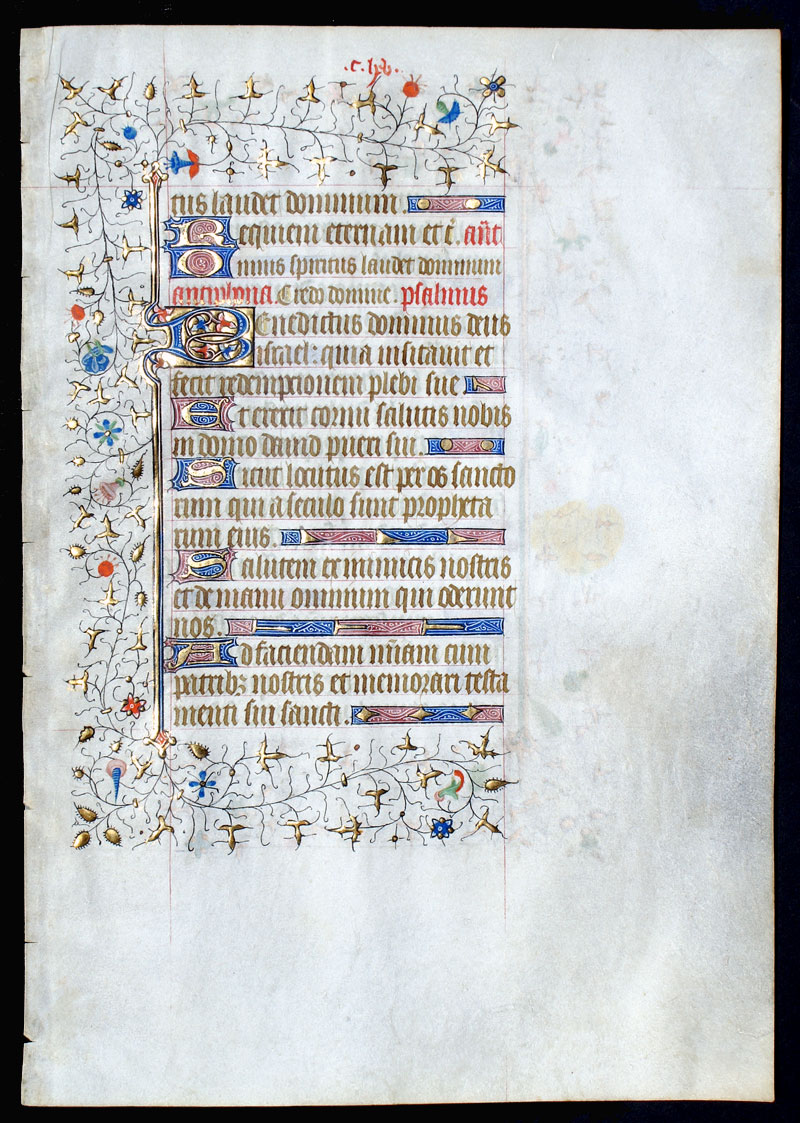 .c.lxv.
tus laudet dominum.
Requiem eternam et c̄. ant̄
Omnis spiritus laudet dominum
antiphona. Credo domine. psalmus
Benedictus dominus deus
israel: quia visitauit et
fecit redemptionem plebi sue
Et erexit cornu salutis nobis
in domo dauid pueri sui.
Sicut locutus est per os sancto
rum qui a seculo sunt propheta
rum eius.
Salutem ex inimicis nostris
et de manu omnium qui oderunt
nos.
Ad faciendam mīam cum
patribꝫ nostris et memorari testa
menti sui sancti.